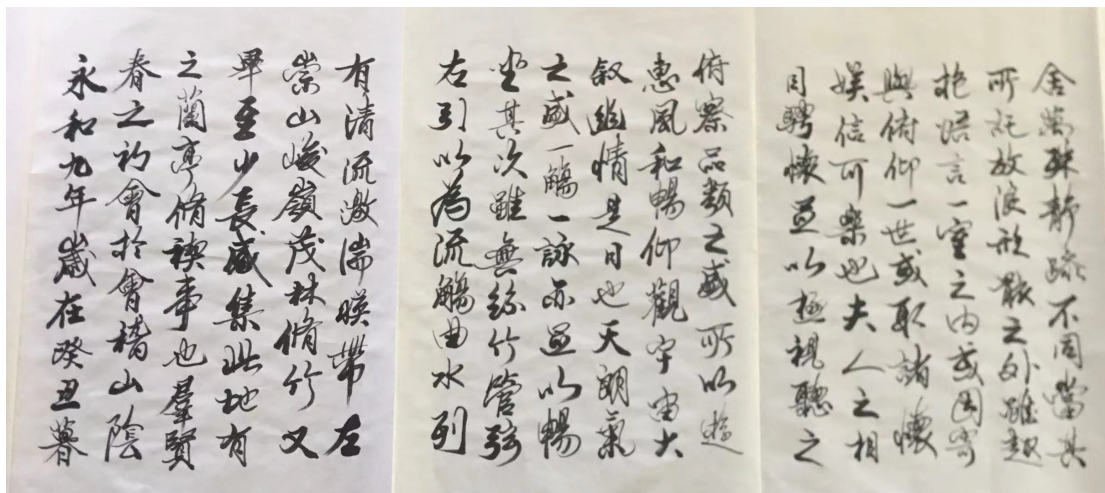 永和九年歲在癸丑暮
春之初會於會稽山陰
之蘭亭脩禊事也羣賢
畢至少長咸集此地有
崇山峻嶺茂林脩竹又
有清流激湍暎帶左
右引以為流觴曲水列
坐其次雖無絲竹管弦
之盛一觴一詠亦足以暢
叙幽情是日也天朗氣
惠風和暢仰觀宇宙大
俯察品類之盛所以遊
目騁懷足以極視聽之
娛信可樂也夫人之相
與俯仰一世或取諸懷
抱悟言一室之内或因寄
所託放浪形骸之外雖趣
舍萬殊靜躁不同當其